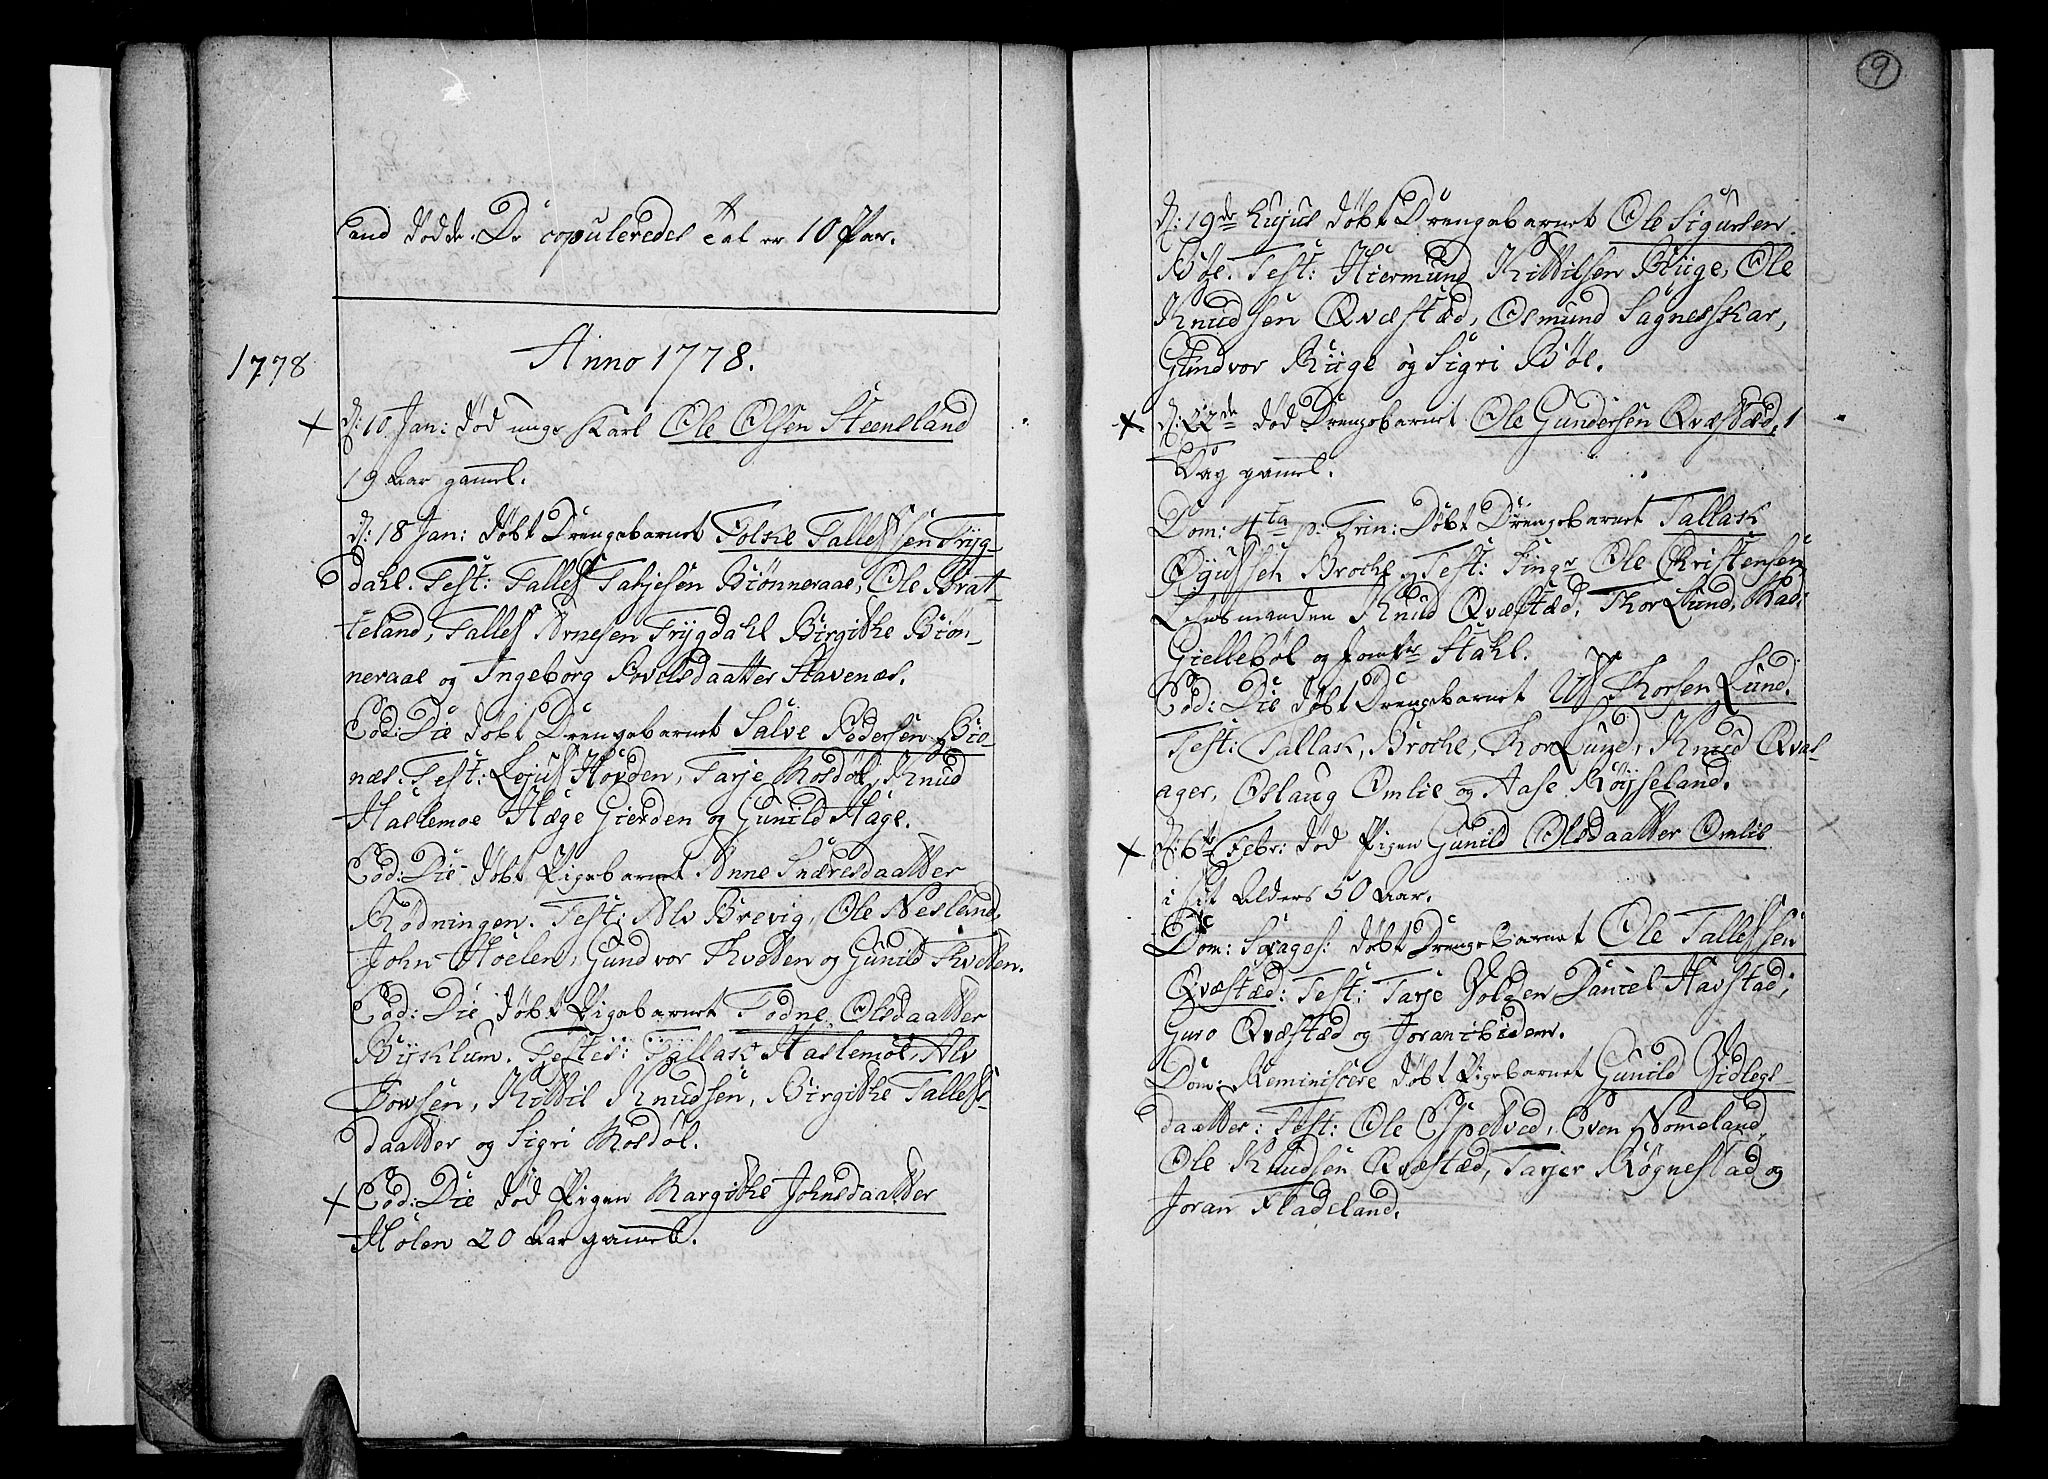 and døde. De copuleredes tal er 10 Par.
1778
Anno 1778.
d: 10 Jan: død unge Karl Ole Olsen Steensland
19 Aar gamel.
d: 18 Jan: døbt Drengebarnet Folke Tallefsen Tryg-
dahl. Test: Tallef Tarjesen Biønneraae, Ole Brat-
teland, Tallef Arnesen Trygdahl Birgithe Biøn-
neraae og Ingeborg Povelsdaatter Stavenæs.
Eod: Die døbt Drengebarnet Salve Pedersen Bio-
næs. Test: Lejuf Hovden, Tarje Rosdøl, Knud
Haslemoe Hæge Gierden og Gunild Hage.
Eod: Die døbt Pigebarnet Anne Snæresdaatter
Rodningen. Test: Alv Brevig, Ole Nesland,
John Hoelen, Gundvor Kvetten og Gunild Kvetten.
Eod: Die døbt Pigebarnet Todne Olsdaatter
Byklum. Testes: Tallak Haslemoe, Alv
Jowsen, Kittil Knudsen, Birgithe Tallefs-
daatter og Sigri Rosdøl.
Eod: Die død Pigen Margithe Johnsdaatter
Holen 20 Aar gamel.
9
d: 19de hujus døbt Drengebarnet Ole Sigursen
Bøe. Test: Hiermund Kittilsen Riige, Ole
Knudsen Qvæstæd, Osmund Sagneskar,
Gundvor Riige og Sigri Bøe.
d: 22de død Drengebarnet Ole Gundersen Qvæstæd, 1
Dag gamel.
Dom: 4ta p: Trin: Døbt Drengebarnet Tallak
Øyufsen Brocke, Test: Sing: Ole Christensen
Lensmanden Knud Qvæstæd, Thor Lund, Mad:
Giellebøl og Jomfr Stahl.
Eod: Die døbt Drengebarnet Uf Thorsen Lund.
Test: Tallak, Brocke, Thor Lund, Knud Qvas-
ager, Oslaug Omlie og Aase Røysseland.
d: 6te Febr: død Pigen Gunild Olsdaatter Omlie
i sit Alders 50 Aar.
Dom: Sexages: døbt Drengebarnet Ole Tallefsen
Qvæstæd: Test: Tarje Volden, Daniel Havstad,
Guro Qvæstæd og Joran ibidem.
Dom: Reminiscere døbt Pigebarnet Gunild Vidlegs-
daatter: Test: Ole Espetved, Even Nomeland,
Ole Knudsen Qvæstæd, Tarjer Røgnestad og
Joran Fladeland.